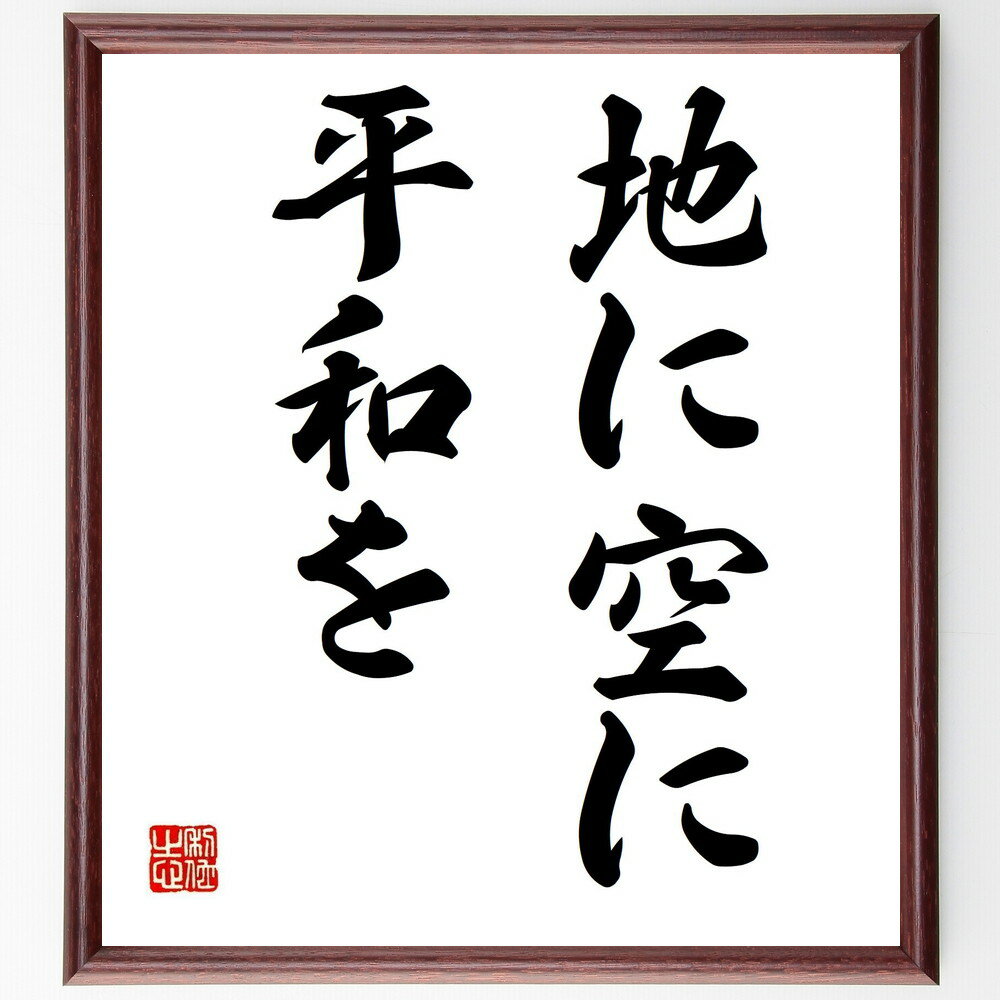 地に空に
平和を